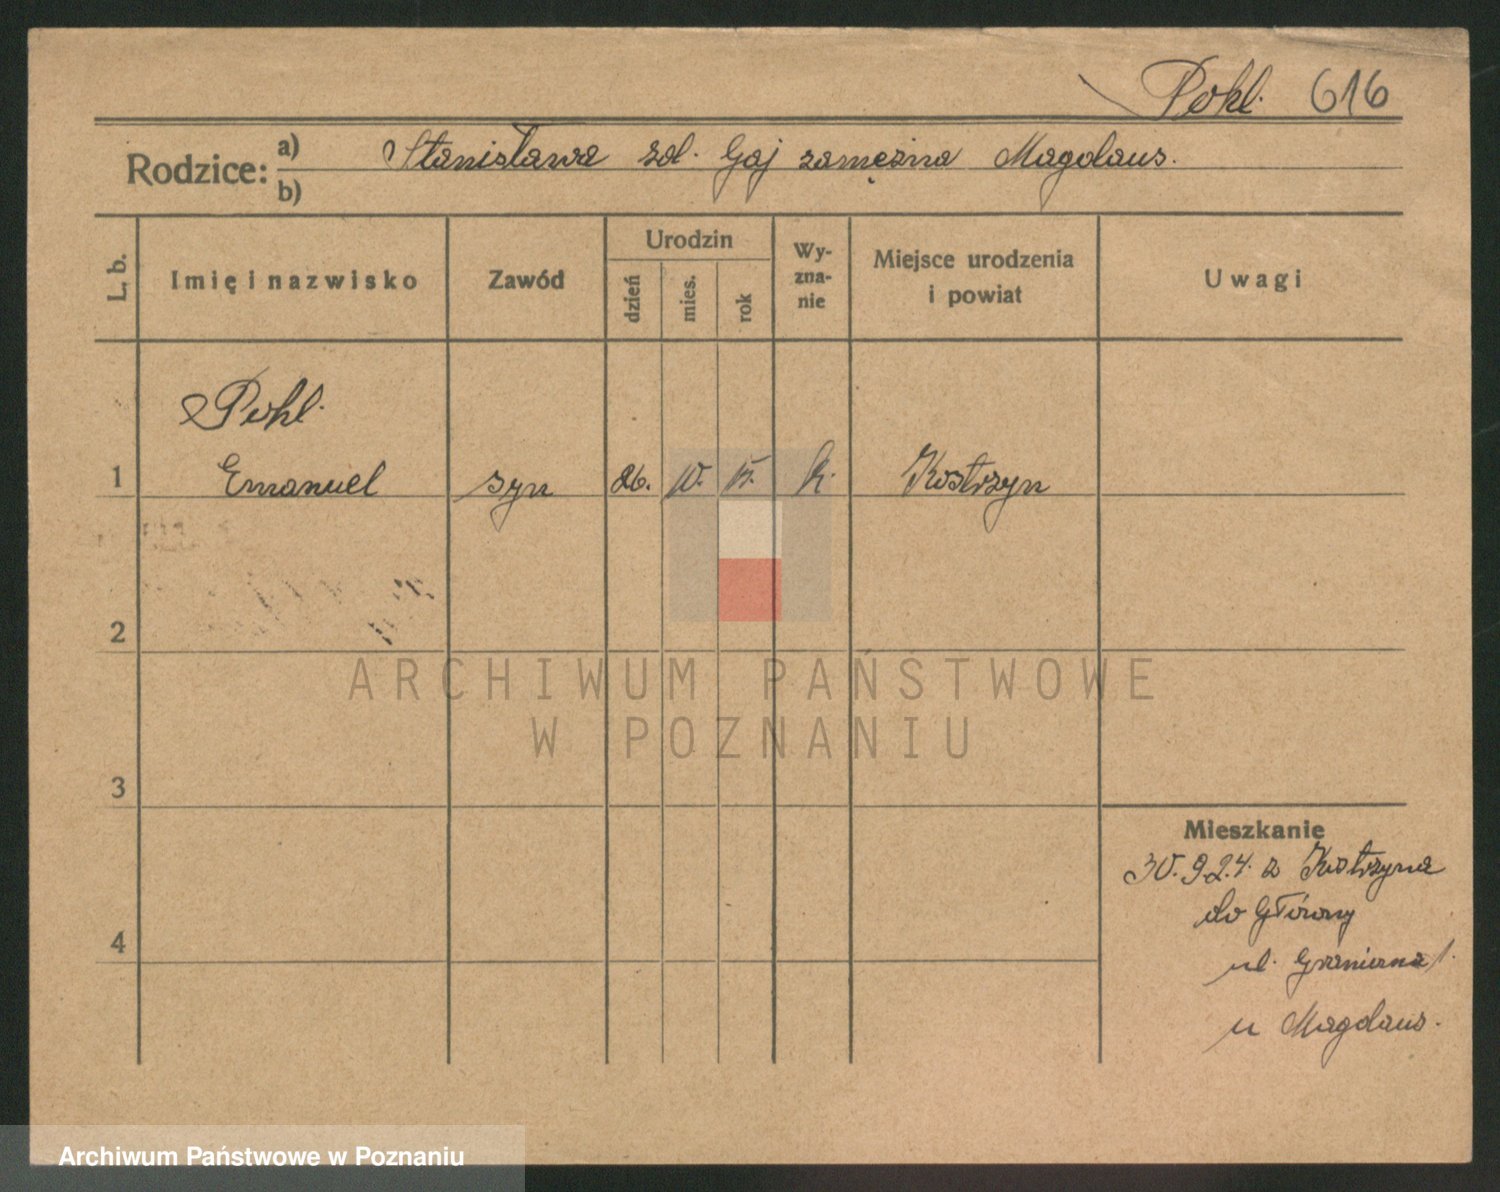 Pohl. 616
Rodzice: a) Stanisława zd. Gaj zamężna Magdans.
b)
L. b.
Imię i nazwisko
Zawód
Urodzin
dzień
mies.
rok
Wy-
zna-
nie
Miejsce urodzenia
i powiat
Uwagi
Pohl.
1 Emanuel syn 26. k. Kostrzyn
2
3
4
Mieszkanie
30.9.24. z Kostrzyna
do Główny
ul. Graniczna 1.
u Magdans.
ARCHIWUM PAŃSTWOWE
W POZNANIU
Archiwum Państwowe w Poznaniu